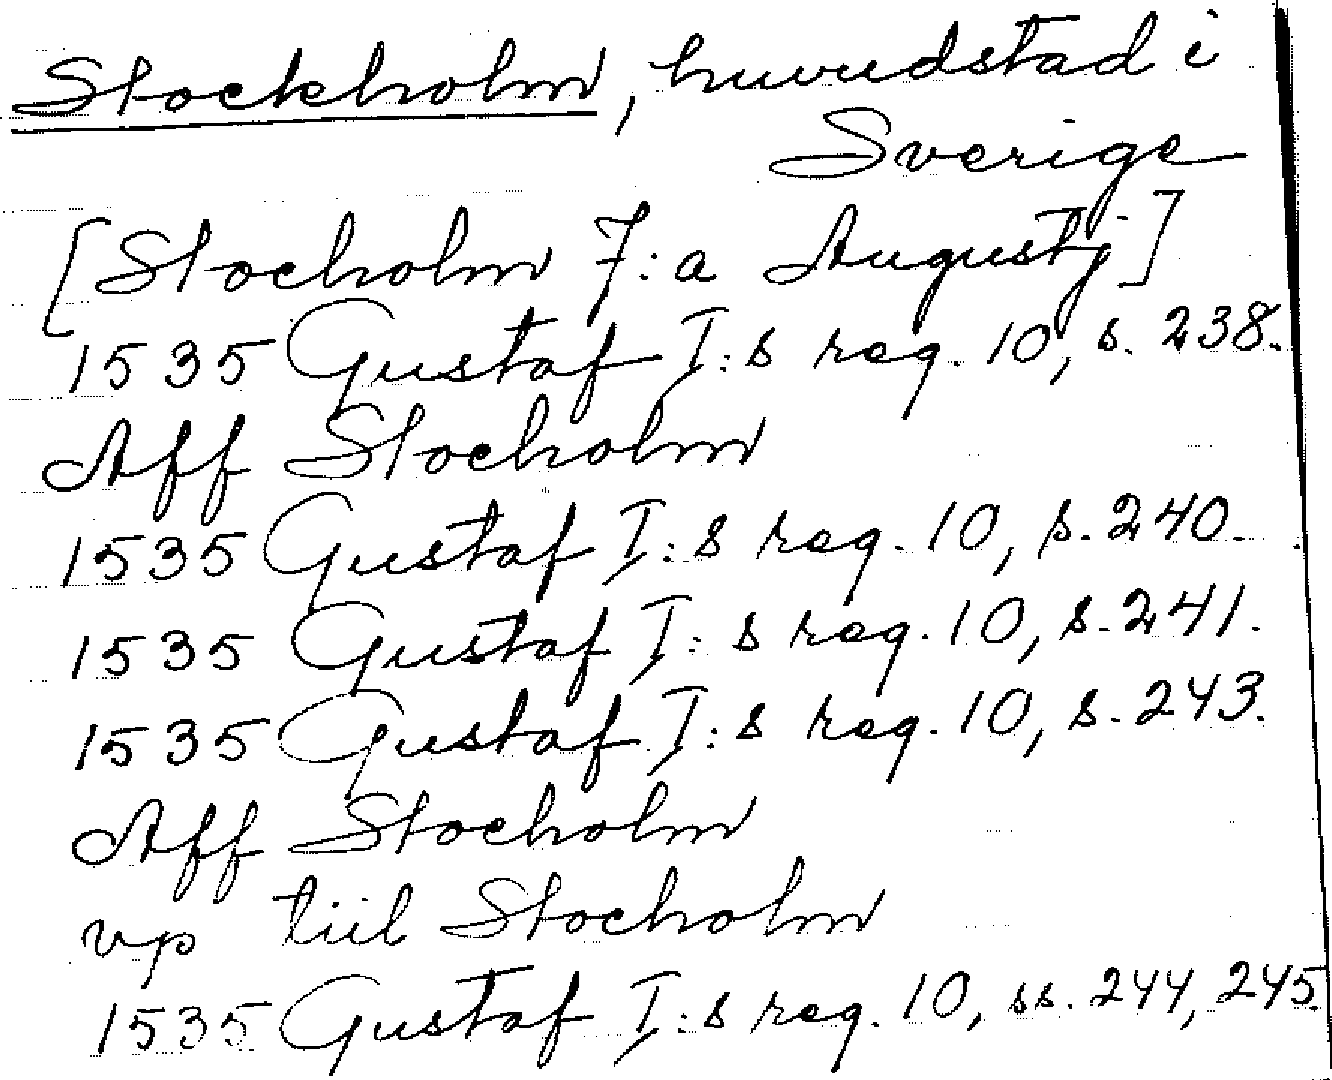 Stockholm, huvudstad i
Sverige
[Stocholm 7:a Augustj]
1535 Gustaf I:s reg. 10, s. 238.
Aff Stocholm
1535 Gustaf I:s reg. 10, s. 240.
1535 Gustaf I:s reg. 10, s. 241.
1535 Gustaf I:s reg. 10, s. 243.
Aff Stocholm
vp tiil Stocholm
1535 Gustaf I:s reg. 10, ss. 244, 245.